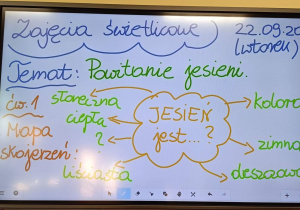 Zajęcia świetlicowe 22.09.20
(wtorek)
Temat: Powitanie jesieni.
ćw. 1 słoneczna JESIEŃ koloro
ciepła jest...?
Mapa ? zimna
skojarzeń:
liściasta deszczowa